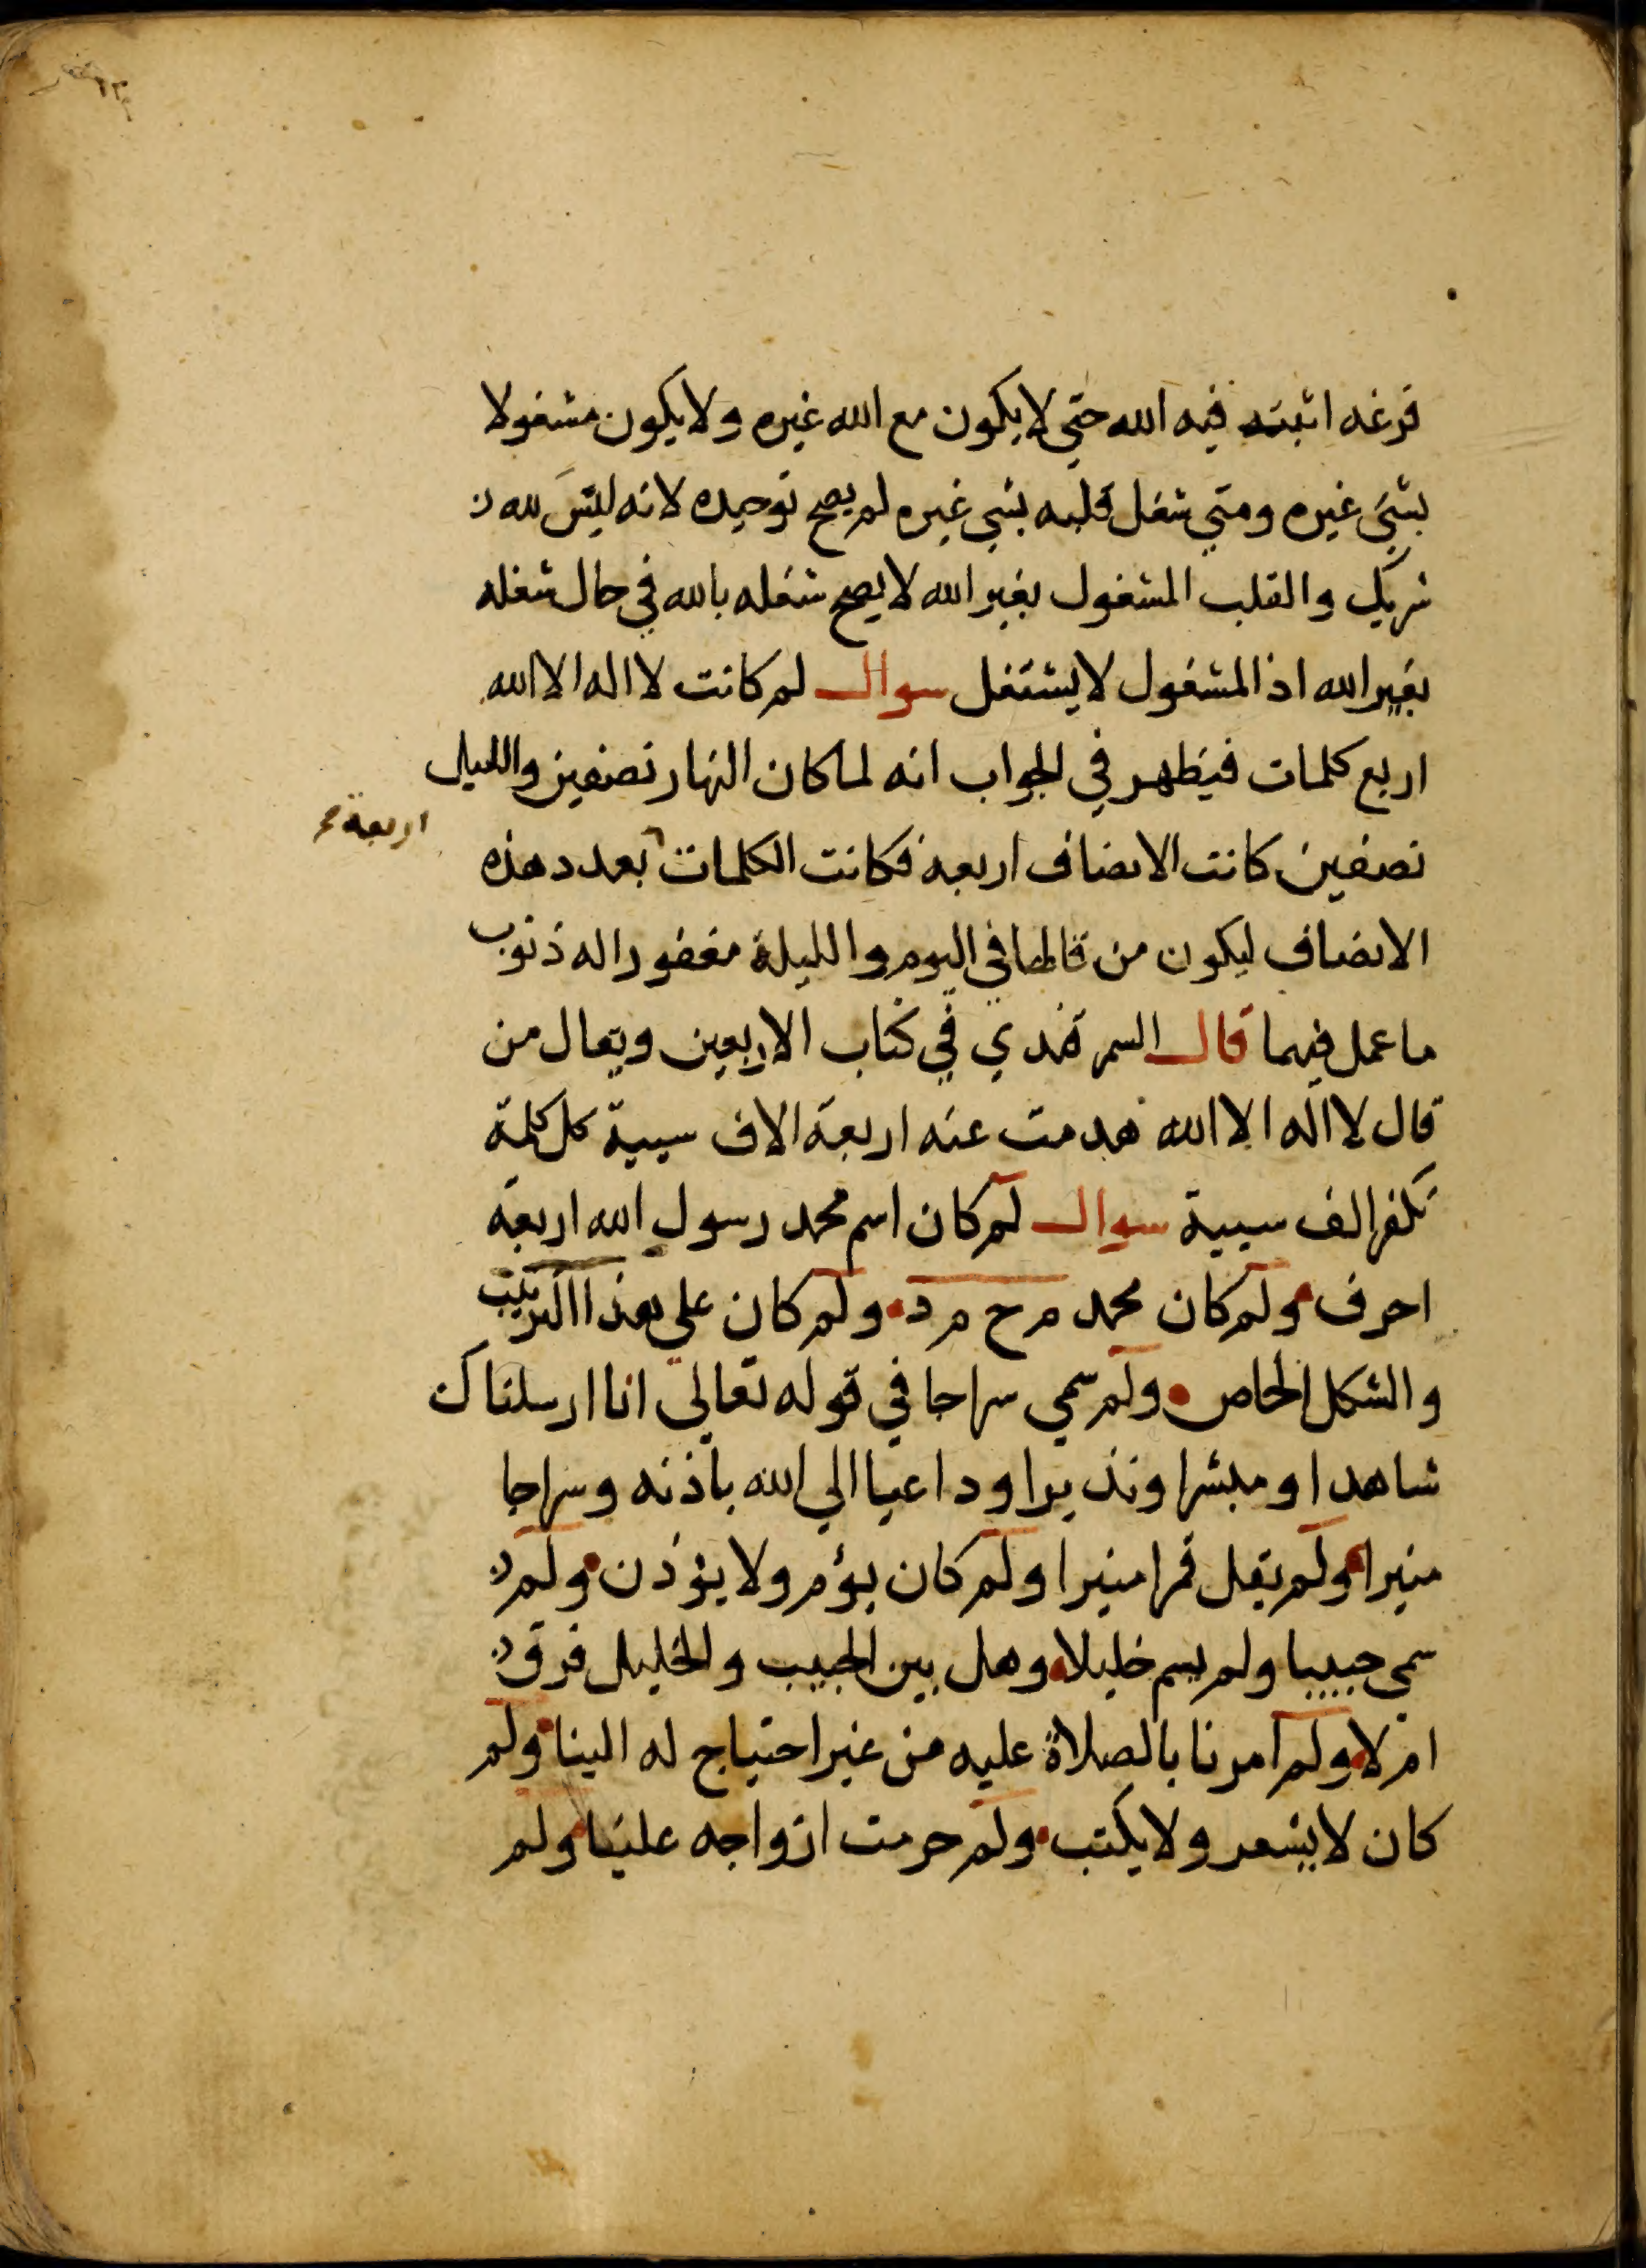 فرغه اثبته فيه الله حتي لا يكون مع الله غيره ولا يكون مشغولا
بشيء غيره ومتي شغل قلبه بشي غيره لم يصح توحيده لانه ليس لله
شريك والقلب المشغول بغير الله لا يصح شغله بالله في حال شغله
بغير الله اذ المشغول لا يشتغل سوال لم كانت لا اله الا الله
اربع كلمات فيظهر في الجواب انه لما كان النهار نصفين والليل
نصفين كانت الانصاف اربعة فكانت الكلمات بعدد هذه
اربعة صح
الانصاف ليكون من قالها في اليوم والليلة مغفورا له ذنوب
ما عمل فيهما قال السمرقندي في كتاب الاربعين ويقال من
قال لا اله الا الله هدمت عنه اربعة الاف سيية كل كلمة
تكفر الف سيية سوال لم كان اسم محمد رسول الله اربعة
احرف ولم كان محمد م ح م د ولم كان علي هذا الترتيب
والشكل الخاص ولم سمي سراجا في قوله تعالي انا ارسلناك
شاهدا ومبشرا ونذيرا وداعيا الي الله باذنه وسراجا
منيرا ولم يقل قمرا منيرا ولم كان يؤم ولا يؤذن ولم
سمي حبيبا ولم يسم خليلا وهل بين الحبيب والخليل فرق
ام لا ولم امرنا بالصلاة عليه من غير احتياج له الينا ولم
كان لا يشعر ولا يكتب ولم حرمت ازواجه علينا ولم